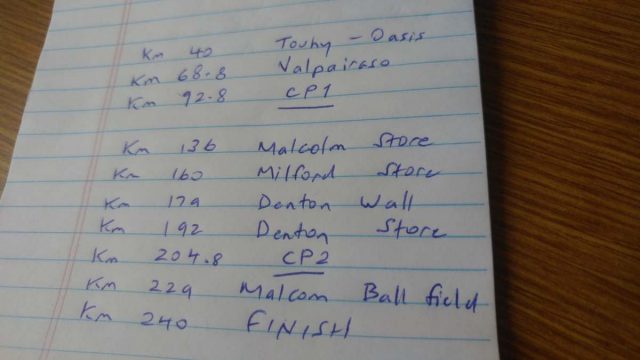 Km 40 Touhy - Oasis
Km 68.8 Valpairaso
Km 92.8 CP1
Km 136 Malcolm Store
Km 160 Milford Store
Km 179 Denton Wall
Km 192 Denton Store
Km 204.8 CP2
Km 229 Malcom Ball field
Km 240 FINISH